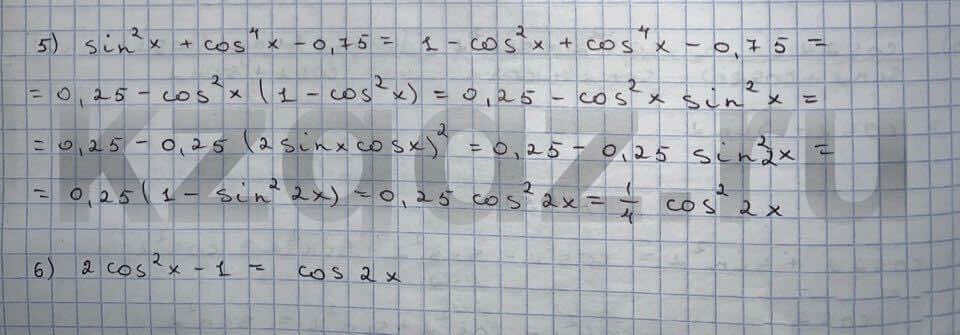 5) sin²x + cos⁴x - 0,75 = 1 - cos²x + cos⁴x - 0,75 =
= 0,25 - cos²x (1 - cos²x) = 0,25 - cos²x sin²x =
= 0,25 - 0,25 (2sinxcosx)² = 0,25 - 0,25 sin²2x =
= 0,25(1 - sin²2x) = 0,25 cos²2x = 1/4 cos²2x
6) 2cos²x - 1 = cos2x
kzgdz.ru